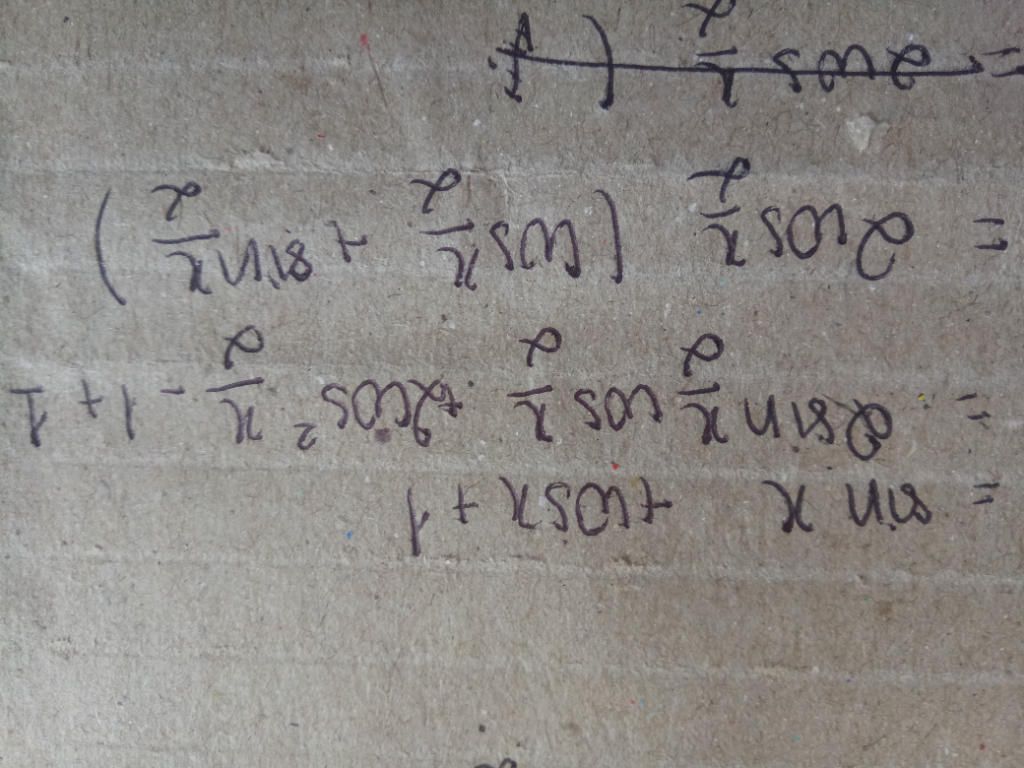 = sin x + cos x + 1
= 2 sin x/2 cos x/2 + 2cos² x/2 - 1 + 1
= 2 cos x/2 (cos x/2 + sin x/2)
= 2 cos x/2 (